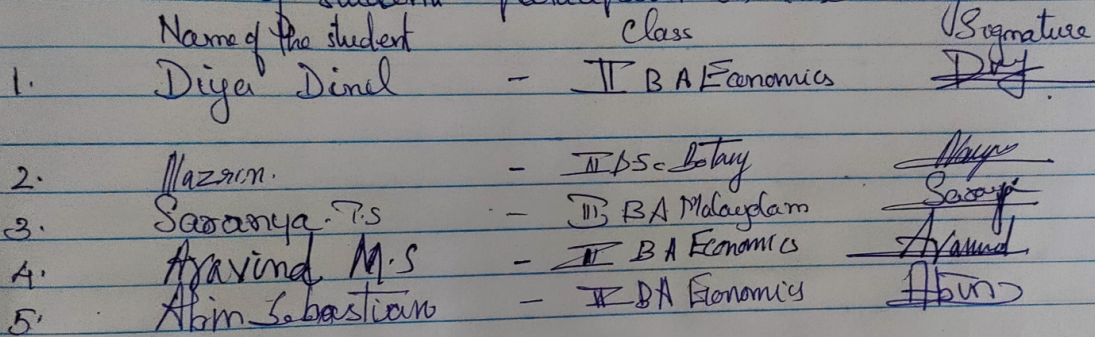 Name of the student Class Signature
1. Diya Dinel - II B A Economics Diy
2. Nazrin. - II BSc Botany
3. Saranya. T.S - III BA Malayalam Saranya
4. Aravind M.S - II B A Economics Aravind
5. Abin Sebastian - II BA Economics Abin